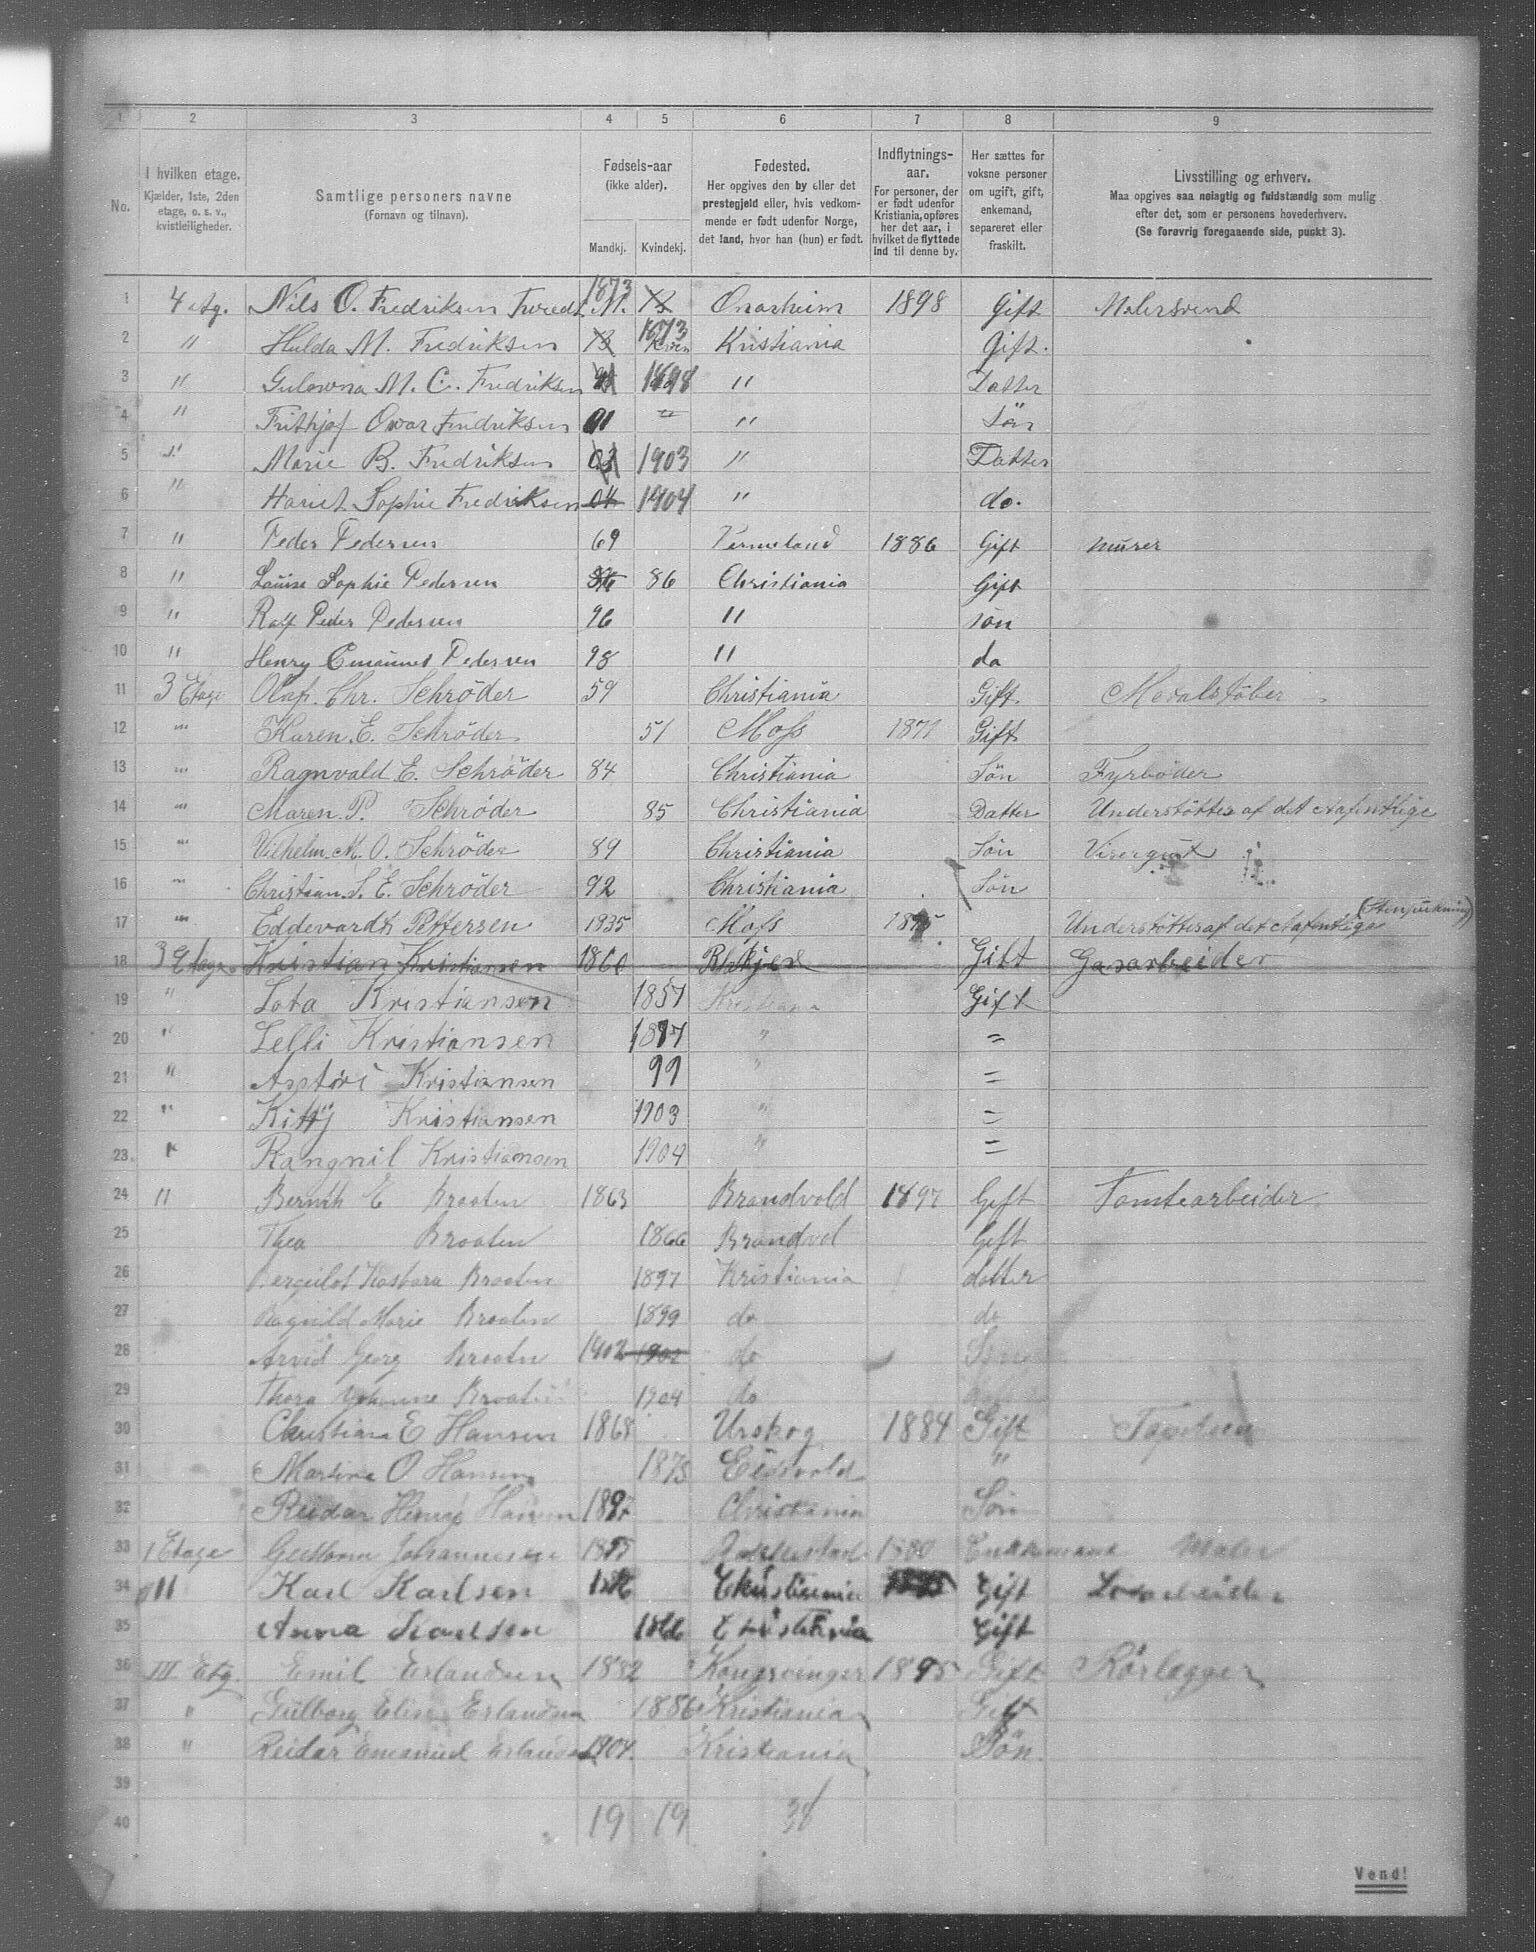 1 2 3 4 5 6 7 8 9
No.
I hvilken etage.
Kjælder, 1ste, 2den
etage, o. s. v.,
kvistleiligheder.
Samtlige personers navne
(Fornavn og tilnavn).
Fødsels-aar
(ikke alder).
Mandkj. Kvindekj.
Fødested.
Her opgives den by eller det
prestegjeld eller, hvis vedkom-
mende er født udenfor Norge,
det land, hvor han (hun) er født.
Indflytnings-
aar.
For personer, der
er født udenfor
Kristiania, opføres
her det aar, i
hvilket de flyttede
ind til denne by.
Her sættes for
voksne personer
om ugift, gift,
enkemand,
separeret eller
fraskilt.
Livsstilling og erhverv.
Maa opgives saa nøiagtig og fuldstændig som mulig
efter det, som er personens hovederhverv.
(Se forøvrig foregaaende side, punkt 3).
1 4 etg. Nils O. Fredriksen 1873 M. Onarheim 1898 Gift Malersvend
2 " Hulda M. Fredriksen 1873 Kristiania Gift.
3 " M. C. Fredriksen 1898 " Datter
4 " Frithjof Fredriksen 01 " " Søn
5 " Marie B. Fredriksen 03 1903 " Datter
6 " Sophie Fredriksen 04 1904 " do.
7 " Peder Pedersen 69 Vermeland 1886 Gift murer
8 " Louise Sophie Pedersen 86 Christiania Gift
9 " Rolf Peder Pedersen 96 " søn
10 " Henry Emanuel Pedersen 98 " do
11 3 Etage Olaf. Chr. Schrøder 59 Christiania Gift.
12 " Karen. E. Schrøder 51 Moss 1871 Gift
13 " Ragnvald E. Schrøder 84 Christiania Søn Fyrbøder
14 " Maren. P. Schrøder 85 Christiania Datter Understøttes af det
15 " Vilhelm. M. O. Schrøder 89 Christiania Søn Visergut
16 " Christian. S. E. Schrøder 92 Christiania Søn
17 " Pettersen 1835 Moss Understøttes af det
18 3 Etage Kristian Kristiansen 1860 Gift Gasarbeider
19 " Lota Kristiansen 1857 Kristiania Gift
20 " Lelli Kristiansen " =
21 " Kristiansen 99 " =
22 " Kitty Kristiansen 1903 " =
23 " Rangnil Kristiansen 1904 " =
24 " E Braaten 1863 Brandvold 1897 Gift Tomtearbeider
25 Thea Braaten 1866 Brandvol Gift
26 Braaten 1897 Kristiania datter
27 Ragnild Marie Braaten 1899 do do
28 Arvid Georg Braaten 1902 1902 do
29 Thora Braaten 1904 do
30 E Hansen 1868 Urskog 1884 Gift
31 Martine O Hansen 1873 Eidsvold "
32 Reidar Henry Hansen Christiania Søn
33 1 Etage Johannesen Enkemand Maler
34 " Karl Karlsen Christiania Gift
35 Anna Karlsen Christiania Gift
36 III Etg. Emil Erlandsen 1882 Kongsvinger 1895 Gift Rørlægger
37 " Gulborg Elise Erlandsen 1886 Kristiania Gift
38 " Reidar Emanuel Erlandsen 1904. Kristiania Søn.
39
40 19 19 38
Vend!